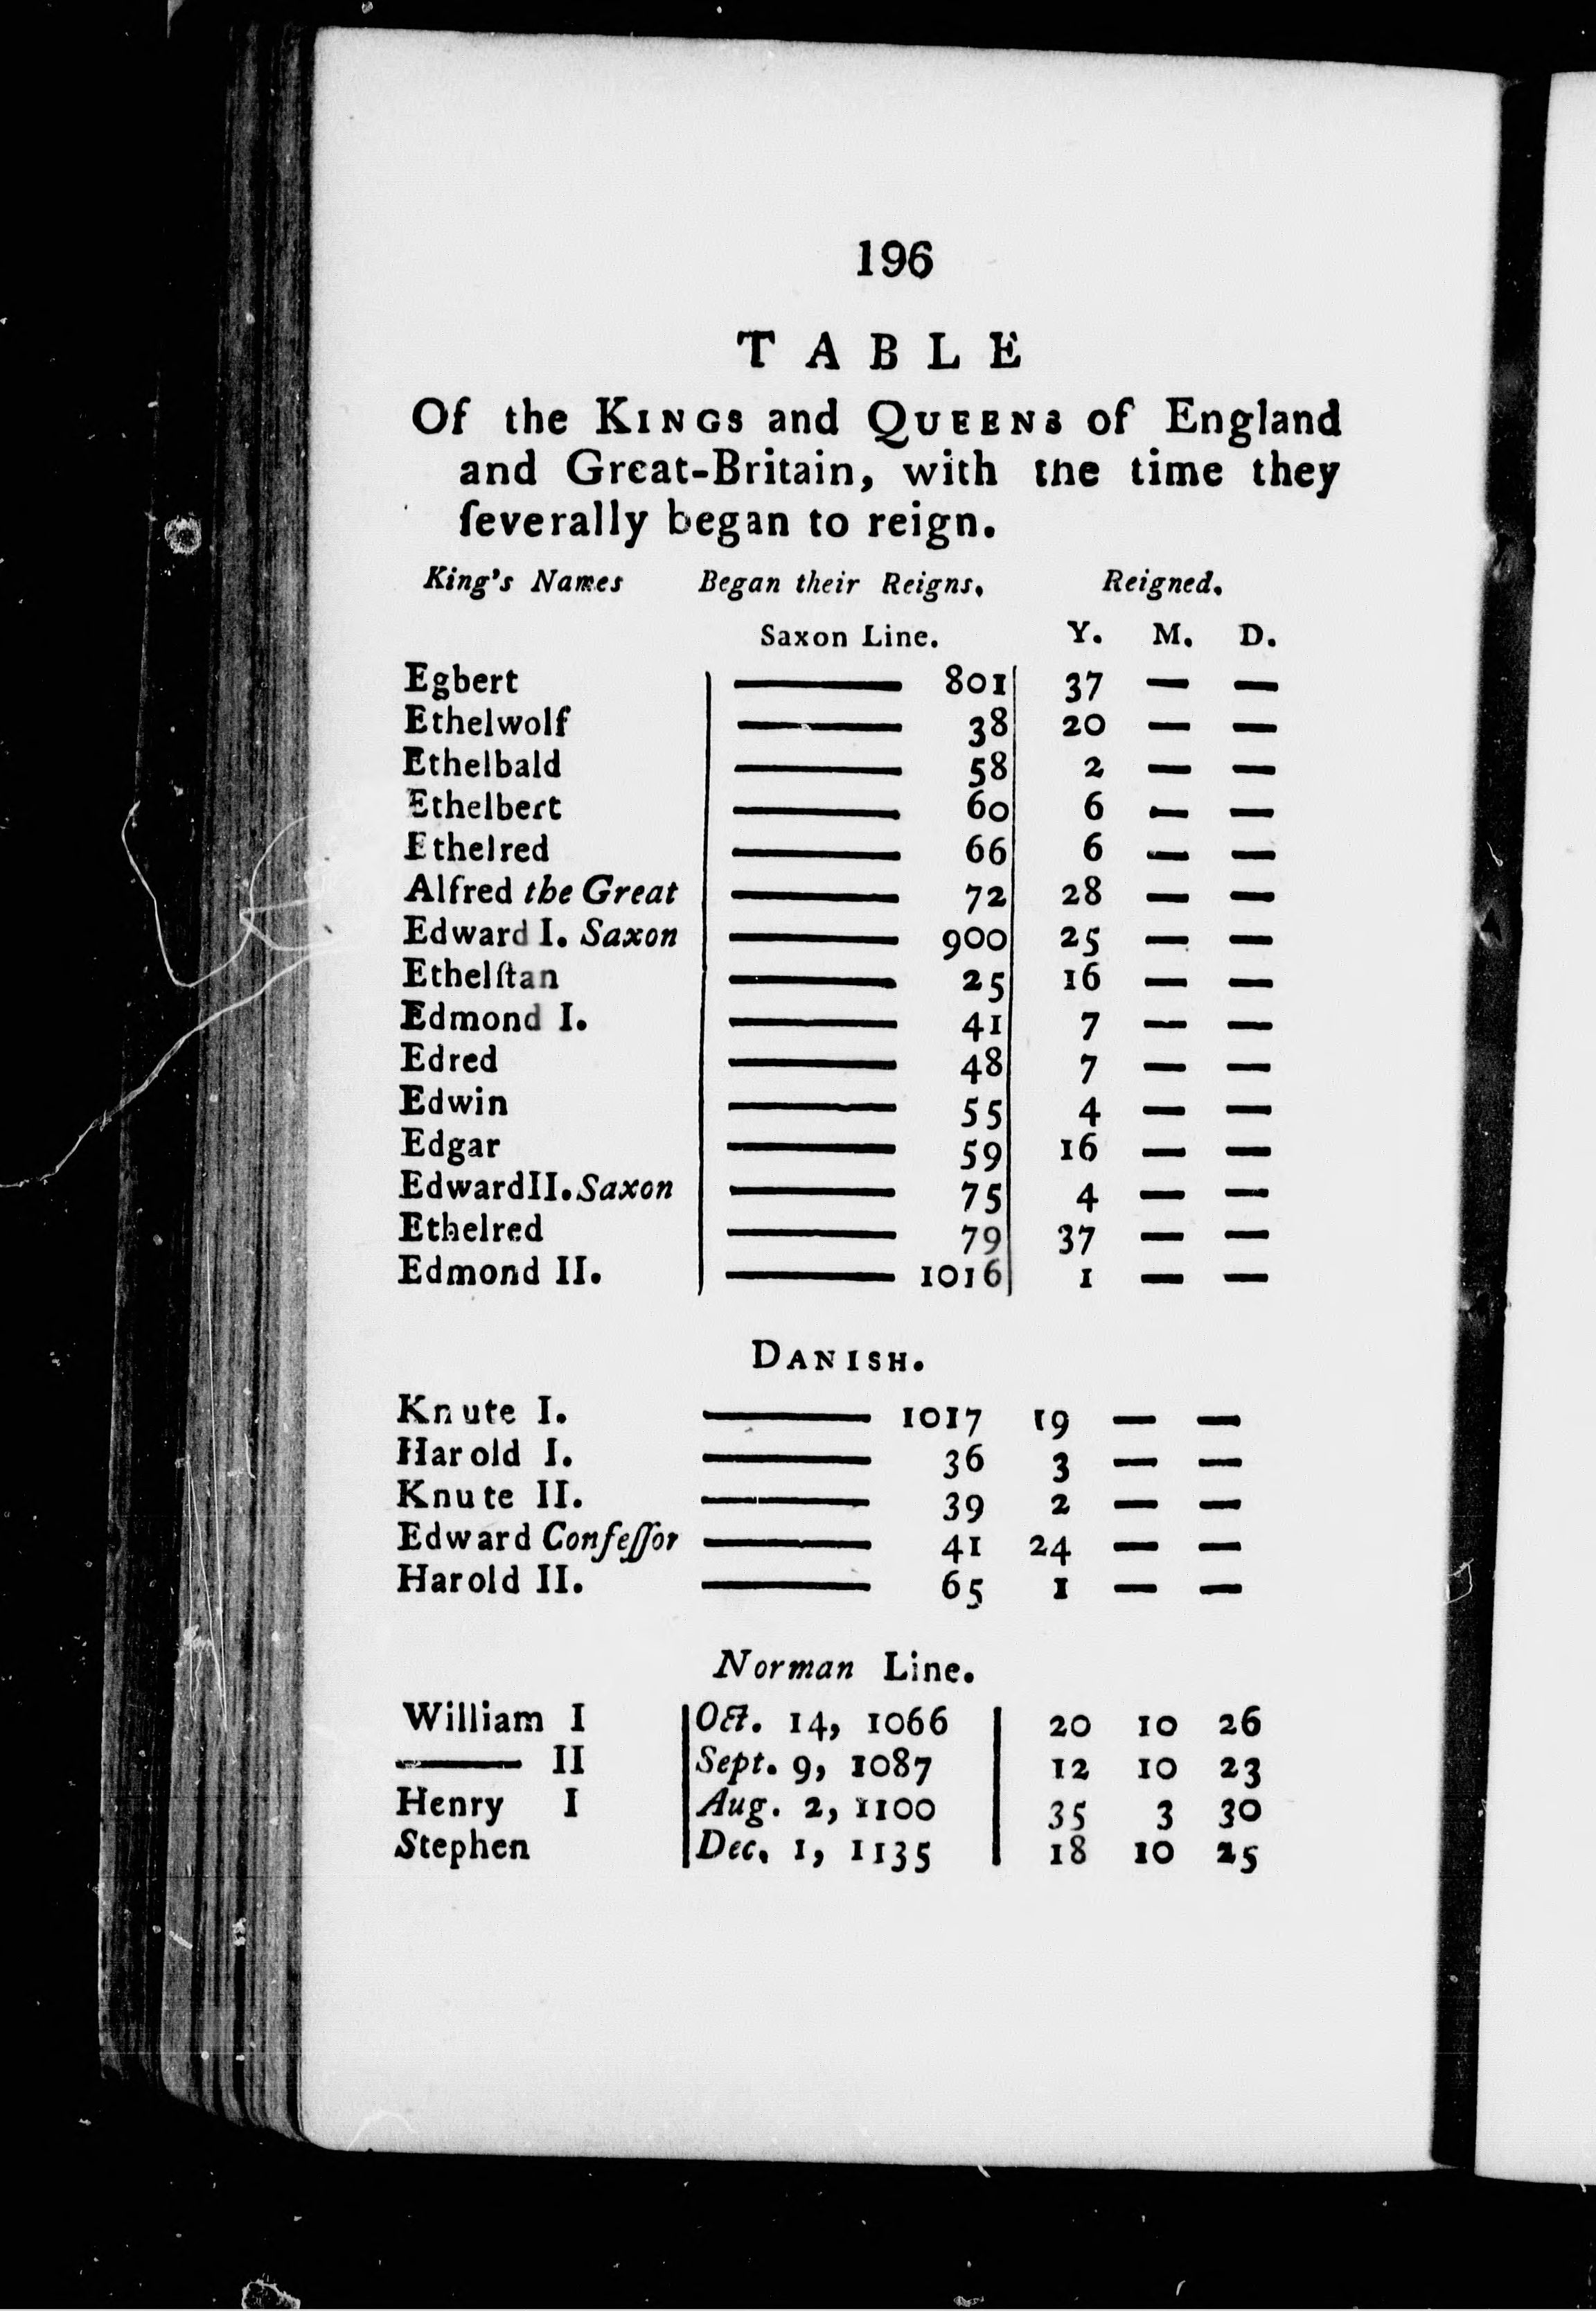 196
TABLE
Of the KINGS and QUEENS of England
and Great-Britain, with the time they
ſeverally began to reign.
King's Names Began their Reigns. Reigned.
Saxon Line. Y. M. D.
Egbert ——— 801 37 — —
Ethelwolf ——— 38 20 — —
Ethelbald ——— 58 2 — —
Ethelbert ——— 60 6 — —
Ethelred ——— 66 6 — —
Alfred the Great ——— 72 28 — —
Edward I. Saxon ——— 900 25 — —
Ethelſtan ——— 25 16 — —
Edmond I. ——— 41 7 — —
Edred ——— 48 7 — —
Edwin ——— 55 4 — —
Edgar ——— 59 16 — —
Edward II. Saxon ——— 75 4 — —
Ethelred ——— 79 37 — —
Edmond II. ——— 1016 1 — —
DANISH.
Knute I. ——— 1017 19 — —
Harold I. ——— 36 3 — —
Knute II. ——— 39 2 — —
Edward Confeſſor ——— 41 24 — —
Harold II. ——— 65 1 — —
Norman Line.
William I Oct. 14, 1066 20 10 26
——— II Sept. 9, 1087 12 10 23
Henry I Aug. 2, 1100 35 3 30
Stephen Dec. 1, 1135 18 10 25